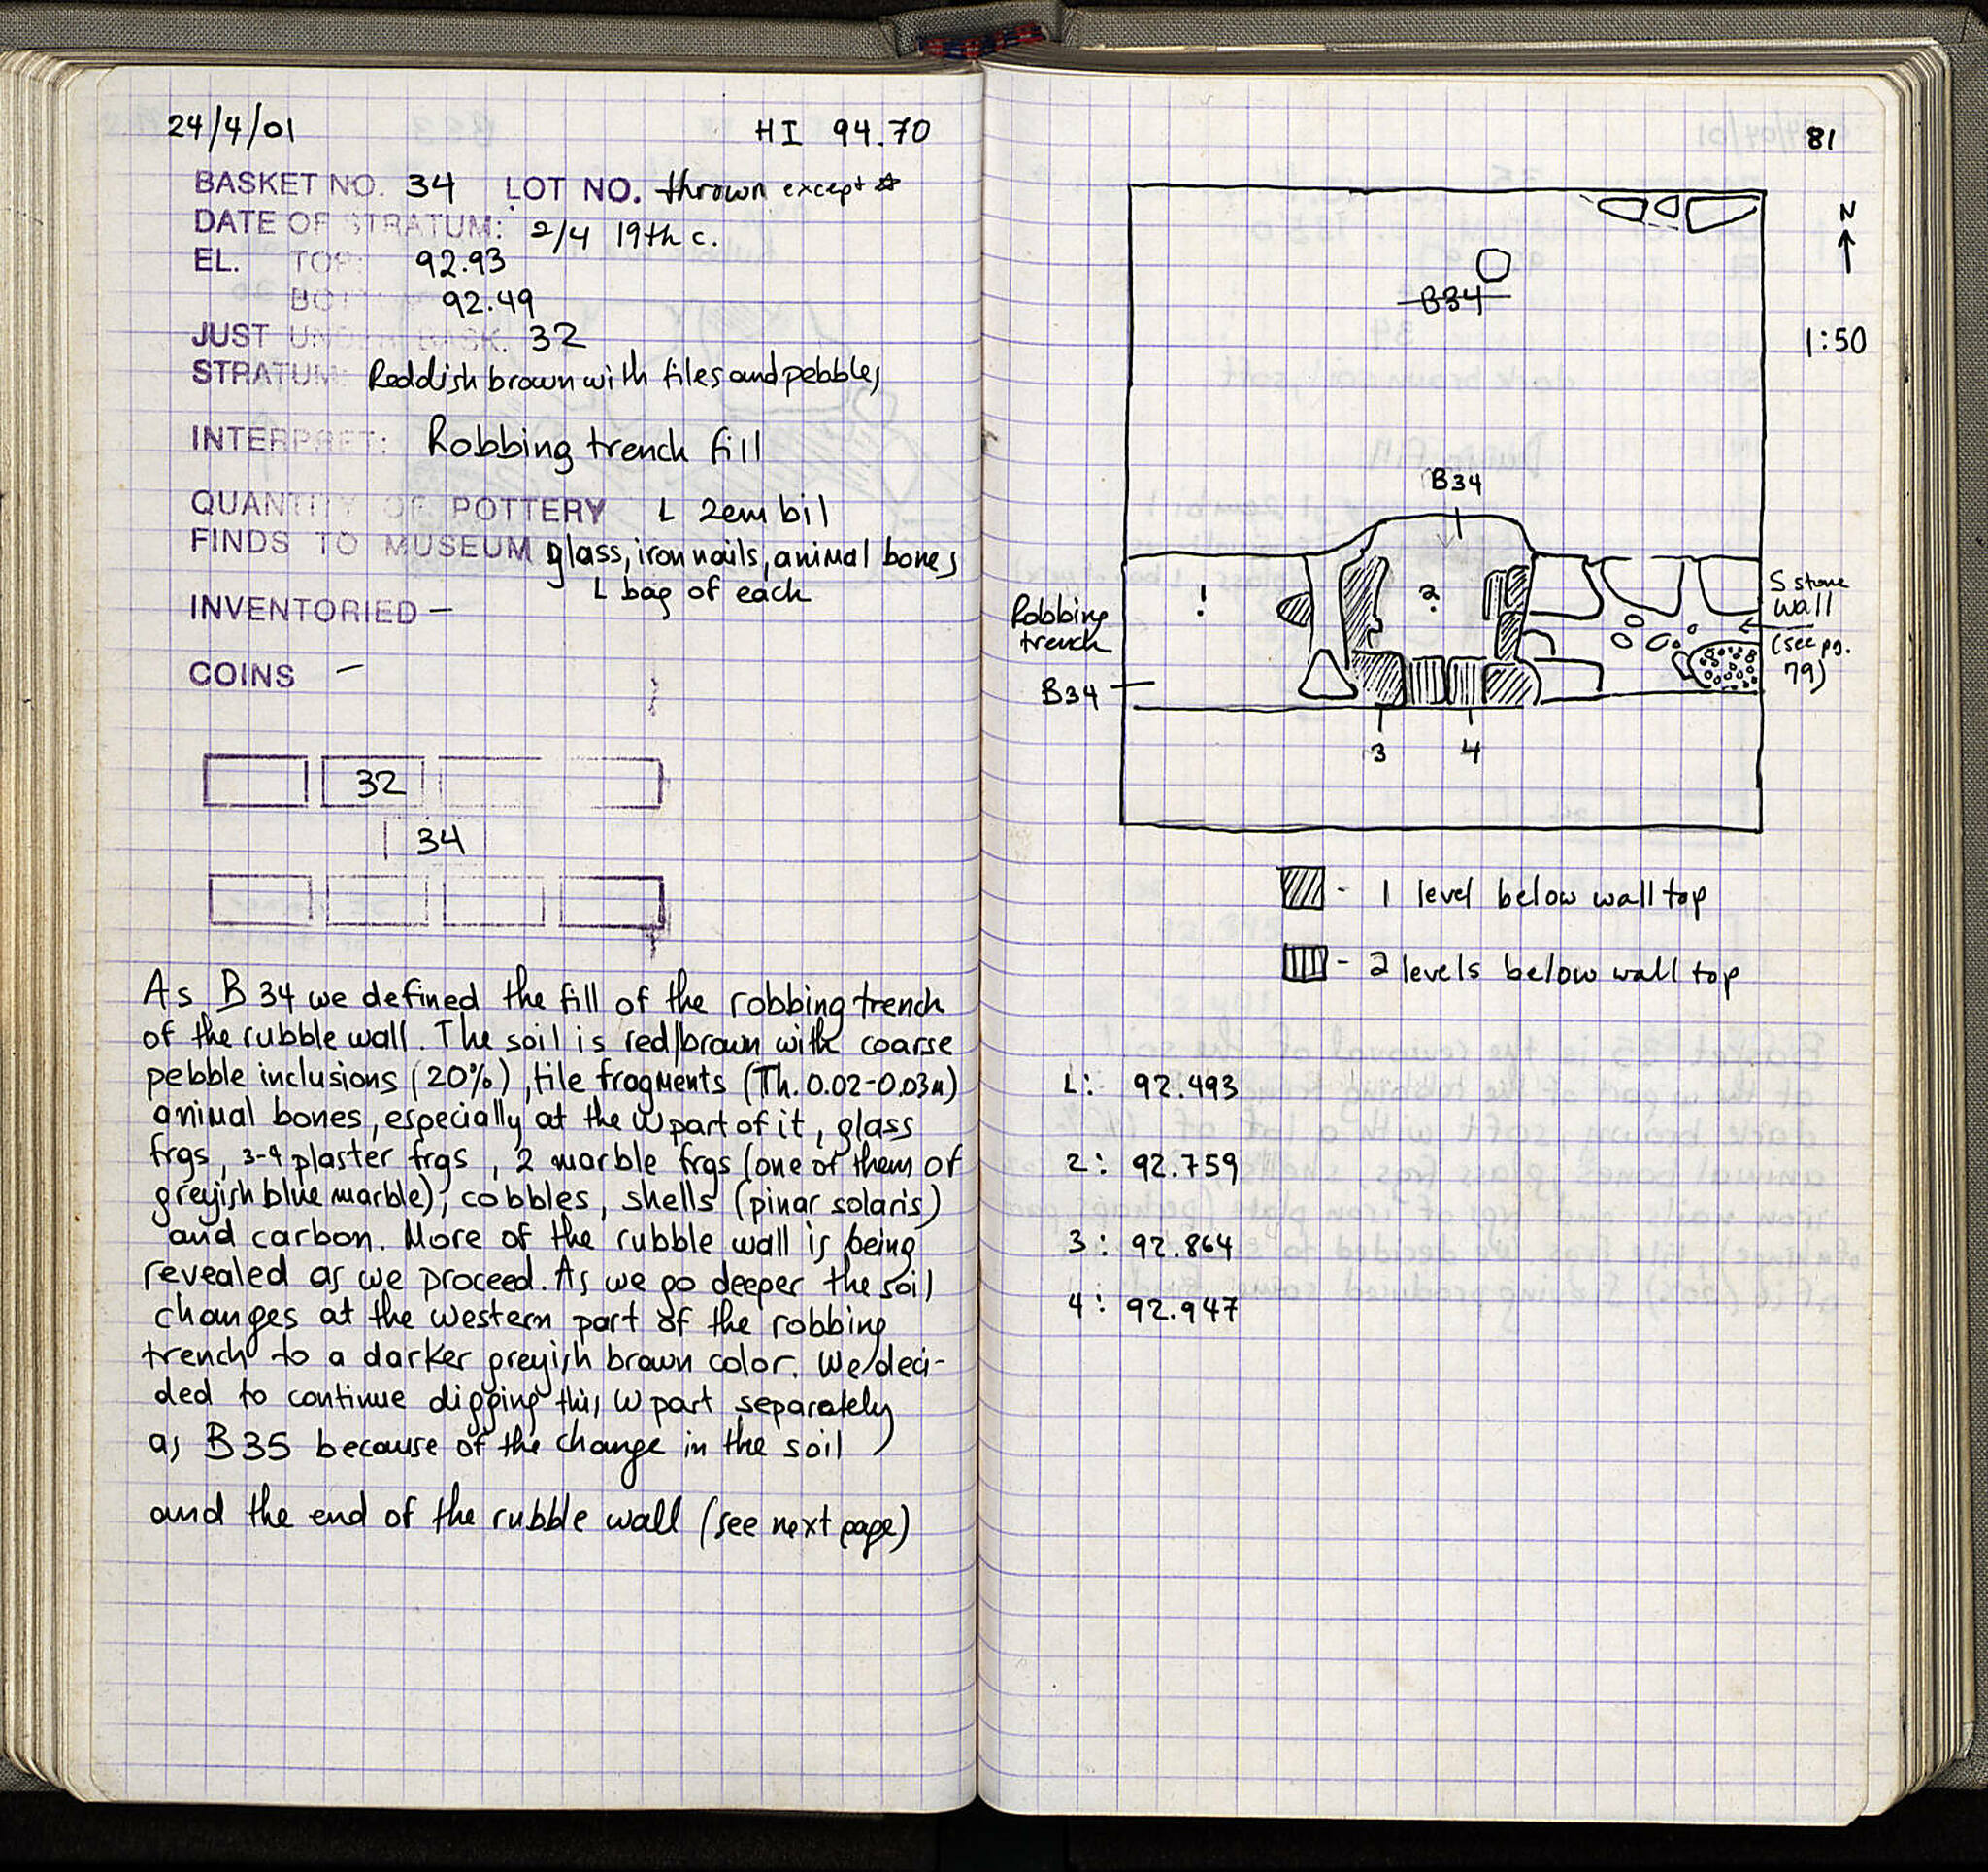 24/4/01 HI 94.70
BASKET NO. 34 LOT NO. thrown except ☆
DATE OF STRATUM: 2/4 19th c.
EL. TOP: 92.93
BOTT 92.49
JUST UNDER BASK. 32
STRATUM: Reddish brown with tiles and pebbles
INTERPRET: Robbing trench fill
QUANTITY OF POTTERY 1 zembil
FINDS TO MUSEUM glass, iron nails, animal bones
1 bag of each
INVENTORIED –
COINS –
32
34
As B 34 we defined the fill of the robbing trench
of the rubble wall. The soil is red/brown with coarse
pebble inclusions (20%), tile fragments (Th. 0.02-0.03m)
animal bones, especially at the W part of it, glass
frgs, 3-4 plaster frgs, 2 marble frgs (one of them of
greyish blue marble), cobbles, shells (pinar solaris)
and carbon. More of the rubble wall is being
revealed as we proceed. As we go deeper the soil
changes at the western part of the robbing
trench to a darker greyish brown color. We deci-
ded to continue digging this W part separately
as B35 because of the change in the soil
and the end of the rubble wall (see next page)
81
N
B34
1:50
B34
S stone
wall
(see pg.
79)
Robbing
trench
B34
1
2
3 4
- 1 level below wall top
- 2 levels below wall top
1: 92.493
2: 92.759
3: 92.864
4: 92.947